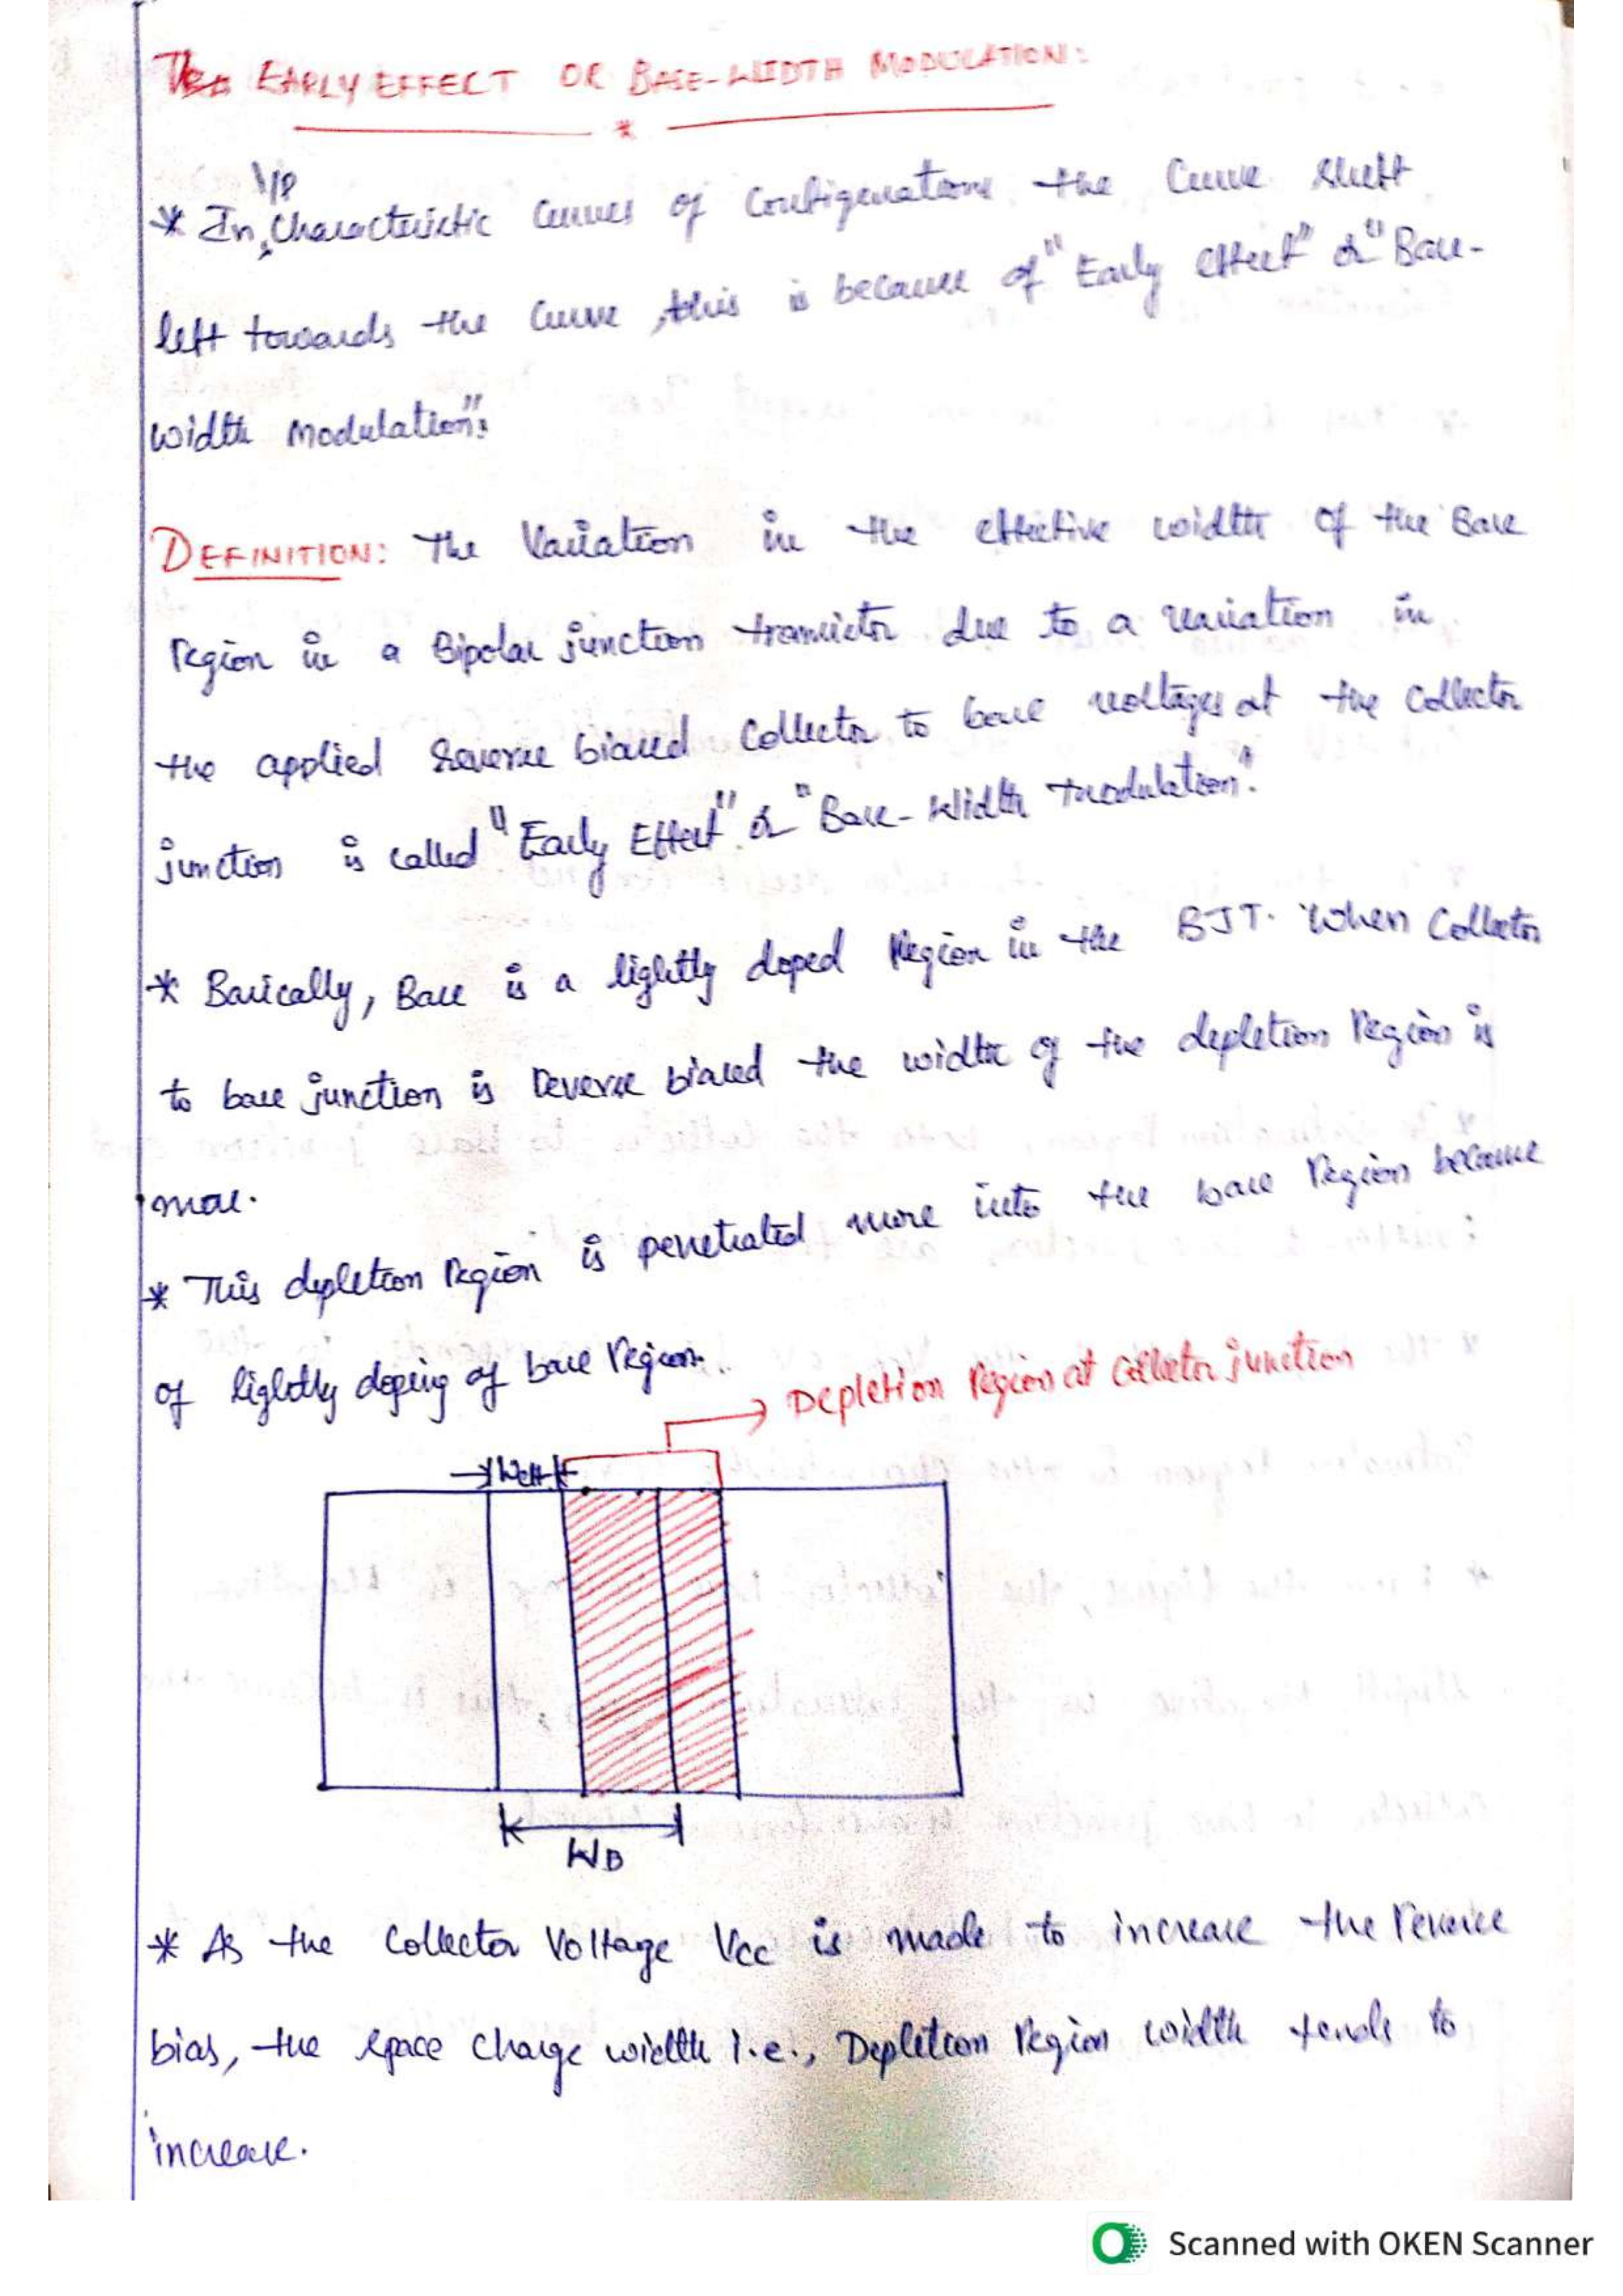 The EARLY EFFECT OR BASE-WIDTH MODULATION:
*
I/P
* In, Characteristic Curves of Configurations the Curve shift
left towards the Curve, this is because of "Early effect" or "Base-
width Modulation".
DEFINITION: The Variation in the effective width of the Base
region in a Bipolar junction transistor due to a variation in
the applied Reverse biased Collector to base voltages at the Collector
junction is called "Early Effect" or "Base-Width Modulation".
* Basically, Base is a lightly doped Region in the BJT. When Collector
to base junction is Reverse biased the width of the depletion Region is
more.
* This depletion Region is penetrated more into the base Region because
of lightly doping of base Region.
Depletion Region at Collector junction
Weff
WB
* As the Collector Voltage Vcc is made to increase the reverse
bias, the space charge width i.e., Depletion Region width tends to
increase.
Scanned with OKEN Scanner